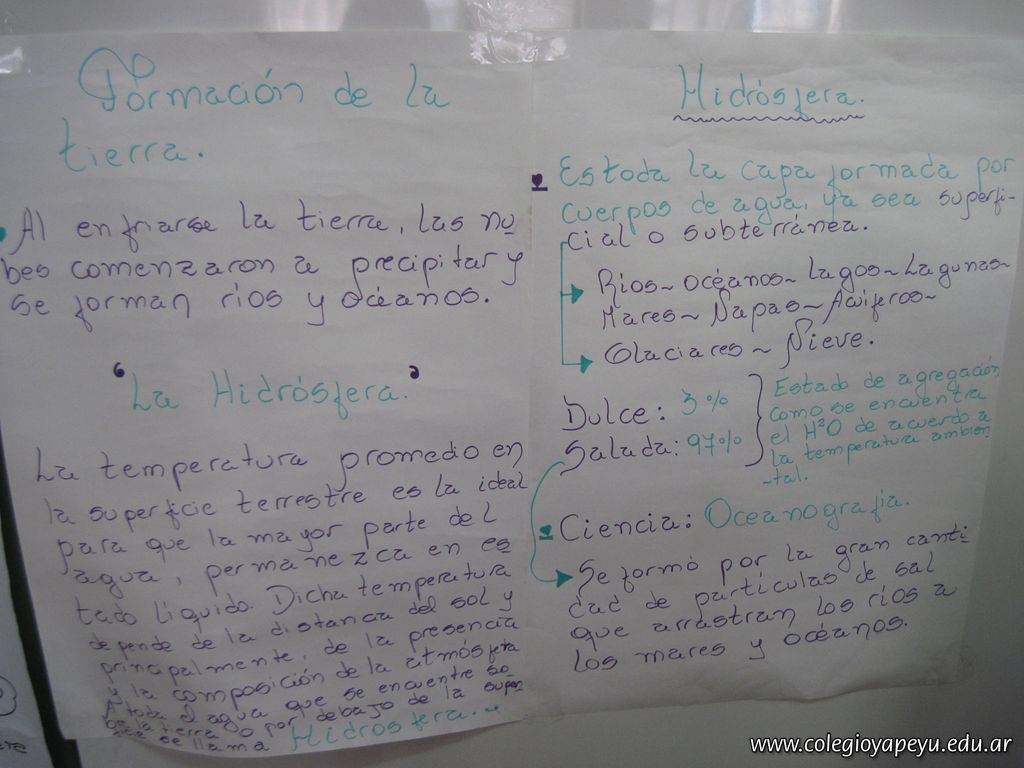 Formación de la
tierra.
Al enfriarse la tierra, las nu
bes comenzaron a precipitar y
se forman ríos y océanos.
"La Hidrósfera."
La temperatura promedio en
la superficie terrestre es la ideal
para que la mayor parte del
agua, permanezca en es
tado líquido. Dicha temperatura
depende de la distancia del sol y
principalmente, de la presencia
y la composición de la atmósfera
A toda el agua que se encuentre so
bre la tierra o por debajo de la super
ficie se llama Hidrosfera...
Hidrósfera.
Es toda la capa formada por
cuerpos de agua, ya sea superfi-
cial o subterránea.
Ríos~océanos~Lagos~Lagunas~
Mares~Napas~Acuiferos~
Glaciares~Nieve.
Dulce: 3%
Salada: 97%
Estado de agregación
como se encuentra
el H²O de acuerdo a
la temperatura ambien
-tal.
Ciencia: Oceanografía.
Se formó por la gran canti-
dad de partículas de sal
que arrastran los ríos a
los mares y océanos.
www.colegioyapeyu.edu.ar